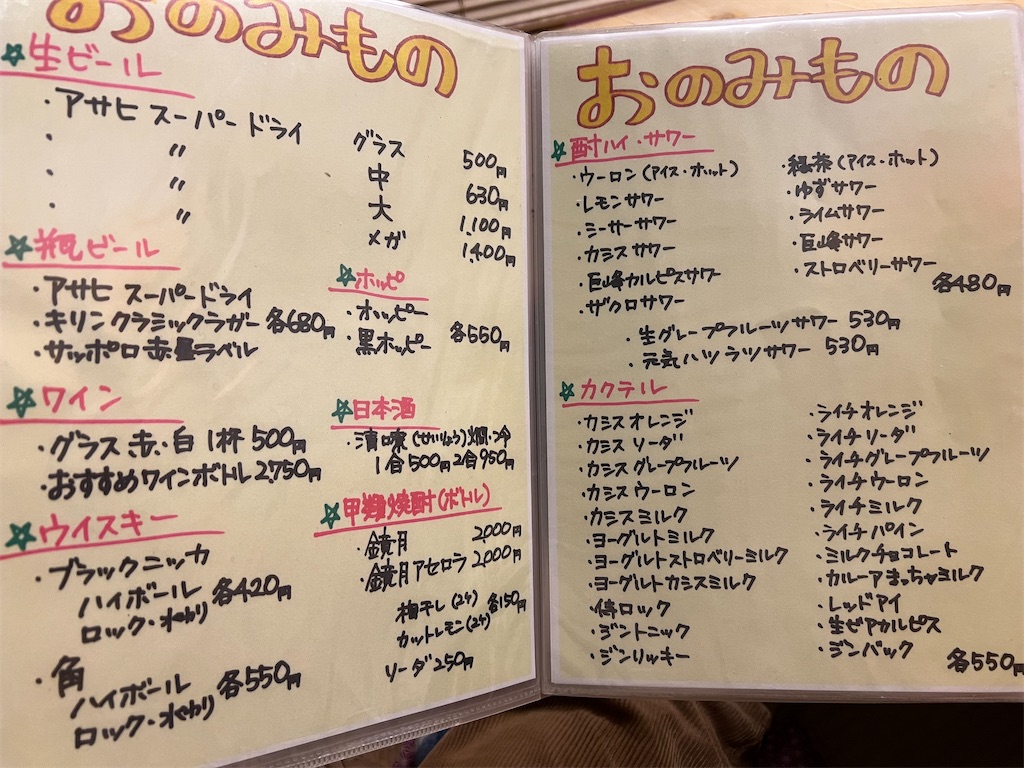 おのみもの
☆生ビール
・アサヒ スーパードライ グラス 500円
・ 〃 中 630円
・ 〃 大 1,100円
・ 〃 メガ 1,400円
☆瓶ビール
・アサヒ スーパードライ
・キリンクラシックラガー 各680円
・サッポロ赤星ラベル
☆ホッピ
・ホッピー
・黒ホッピー 各550円
☆ワイン
・グラス 赤・白 1杯 500円
・おすすめワインボトル 2,750円
☆日本酒
(せいりょう)燗・冷
1合500円 2合950円
☆ウイスキー
・ブラックニッカ
ハイボール
ロック・水わり 各420円
・角
ハイボール
ロック・水わり 各550円
☆甲類焼酎(ボトル)
・鏡月 2,000円
・鏡月アセロラ 2,000円
梅干し(2ケ) 各150円
カットレモン(2ケ)
ソーダ 250円
おのみもの
☆酎ハイ・サワー
・ウーロン(アイス・ホット)
・レモンサワー
・シーサーサワー
・カシスサワー
・巨峰カルピスサワー
・ザクロサワー
・緑茶(アイス・ホット)
・ゆずサワー
・ライムサワー
・巨峰サワー
・ストロベリーサワー
各480円
・生グレープフルーツサワー 530円
・元気ハツラツサワー 530円
☆カクテル
・カシスオレンジ
・カシスソーダ
・カシスグレープフルーツ
・カシスウーロン
・カシスミルク
・ヨーグルトミルク
・ヨーグルトストロベリーミルク
・ヨーグルトカシスミルク
・停ロック
・ジントニック
・ジンリッキー
・ライチオレンジ
・ライチソーダ
・ライチグレープフルーツ
・ライチウーロン
・ライチミルク
・ライチパイン
・ミルクチョコレート
・カルーアまっちゃミルク
・レッドアイ
・生ビアカルピス
・ジンバック
各550円